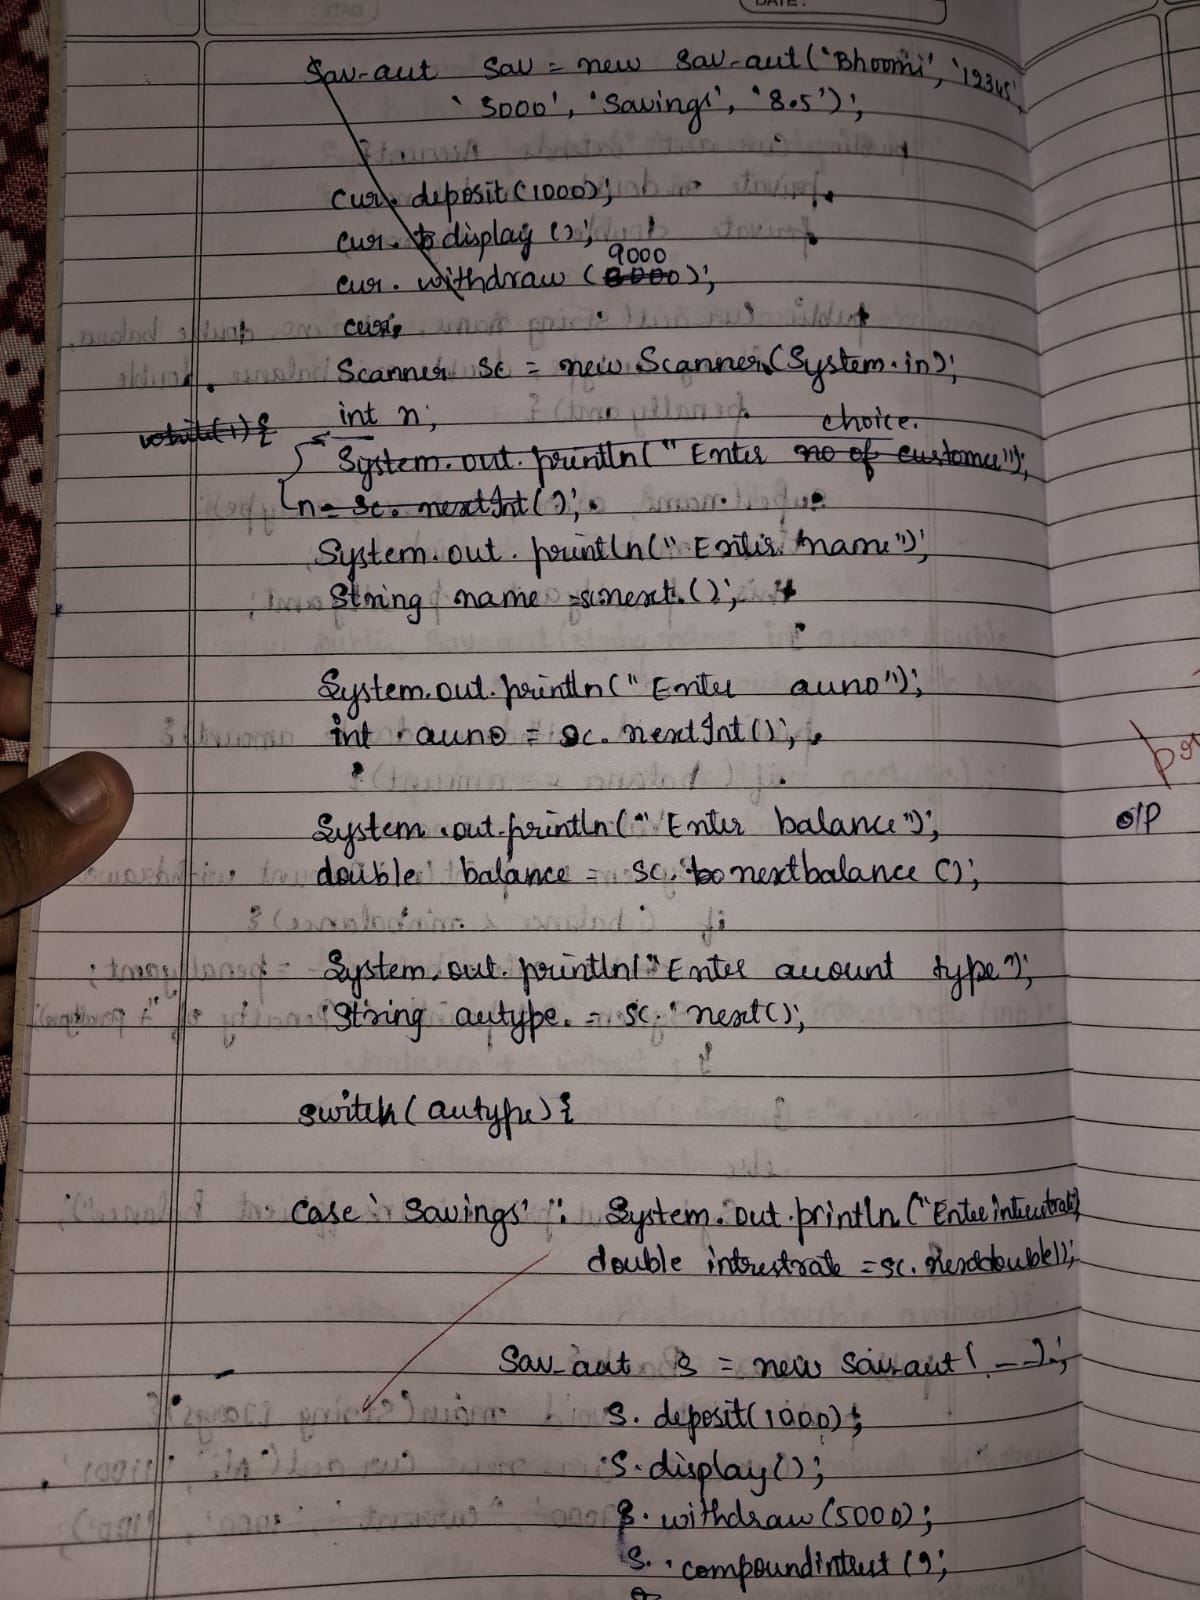 DATE:
Sav-aut sav = new Sav-aut('Bhoomi', '12345',
'5000', 'Savings', '8.5');
cur. deposit(1000);
cur. display();
9000
cur. withdraw (8000);
cur.
Scanner sc = new Scanner(System.in);
int n;
while(1){
choice.
System.out.println(" Enter no of customer");
n = sc. nextInt();
System.out.println(" Enter name");
String name = sc.next.();
System.out.println(" Enter auno");
int auno = sc. nextInt();
System.out.println(" Enter balance");
o/p
double balance = sc. nextbalance ();
System.out.println(" Enter auount type");
String autype. = sc. next();
switch(autype){
case 'Savings' : System.out.println("Enter
double = sc. nextdouble();
Sav_aut s = new Sav-aut(_ _);
s. deposit(1000);
s. display();
s. withdraw (5000);
s. compoundintrest ();